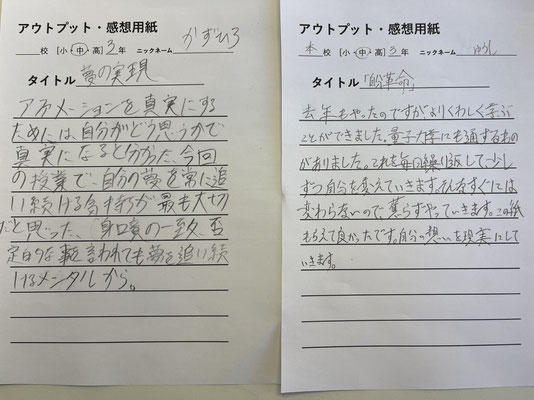 アウトプット・感想用紙
校 [小・中・高] 3年 ニックネーム かずひろ
タイトル 夢の実現
アファメーションを真実にする
ためには、自分がどう思うかで
真実になると分かった、今回
の授業で、自分の夢を常に追
い続ける気持ちが最も大切
だと思った、「身口意の一致、否
定的な事を言われても夢を追い続
けるメンタルから。
アウトプット・感想用紙
本校 [小・中・高] 3年 ニックネーム ゆうし
タイトル 「自革命」
去年もやったのですがよりくわしく学ぶ
ことができました。量子力学にも通ずるもの
がありました。これを毎日繰り返して少し
ずつ自分を変えていきます。そんなすぐには
変わらないので、焦らずやっていきます。この紙
もらえて良かったです。自分の想いを現実にして
いきます。